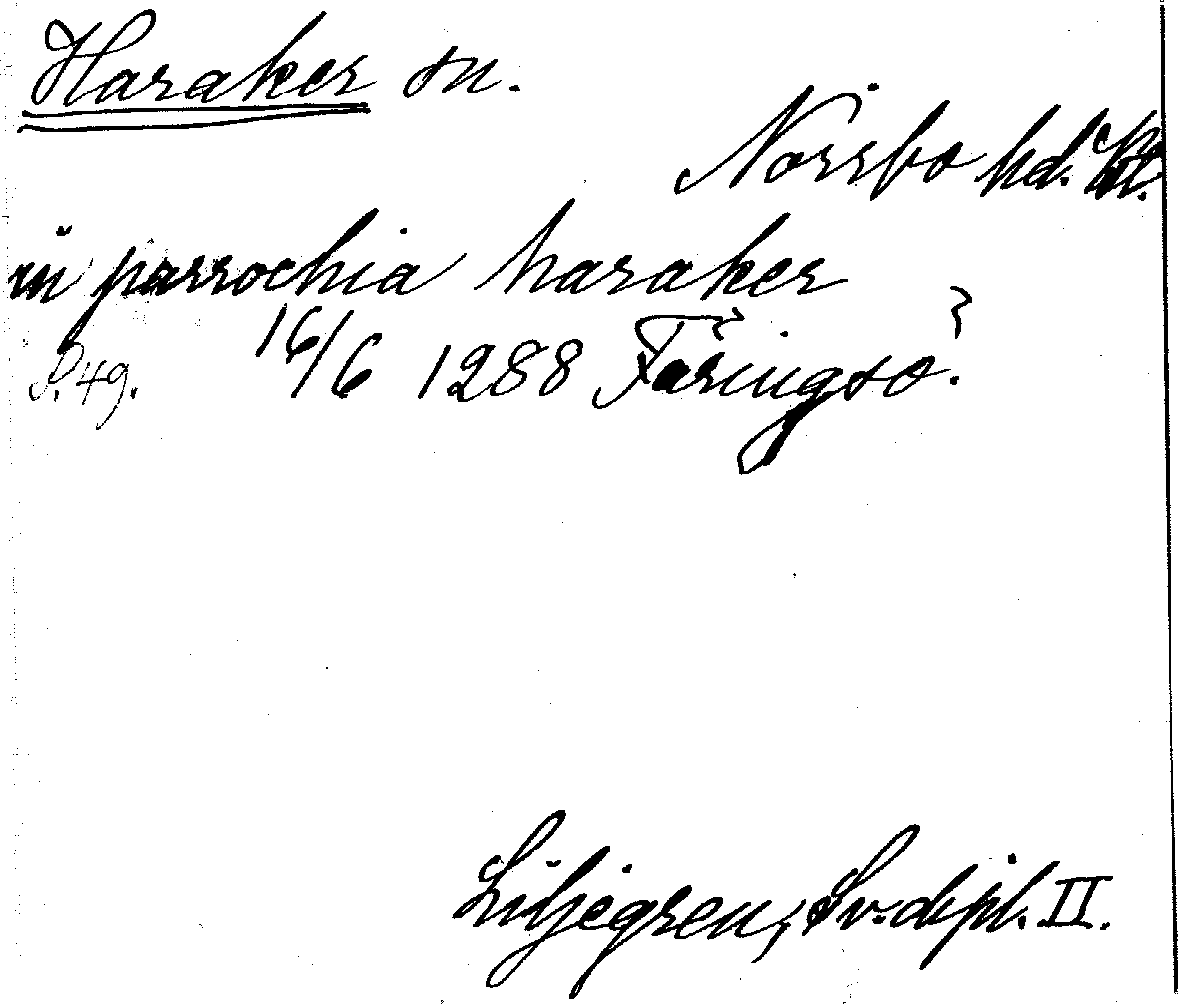 Haraker sn.
Norrbo hd. Vstm.
in parrochia haraker
S. 49. 16/6 1288 Färingsö.?
Liljegren, Sv. dipl. II.